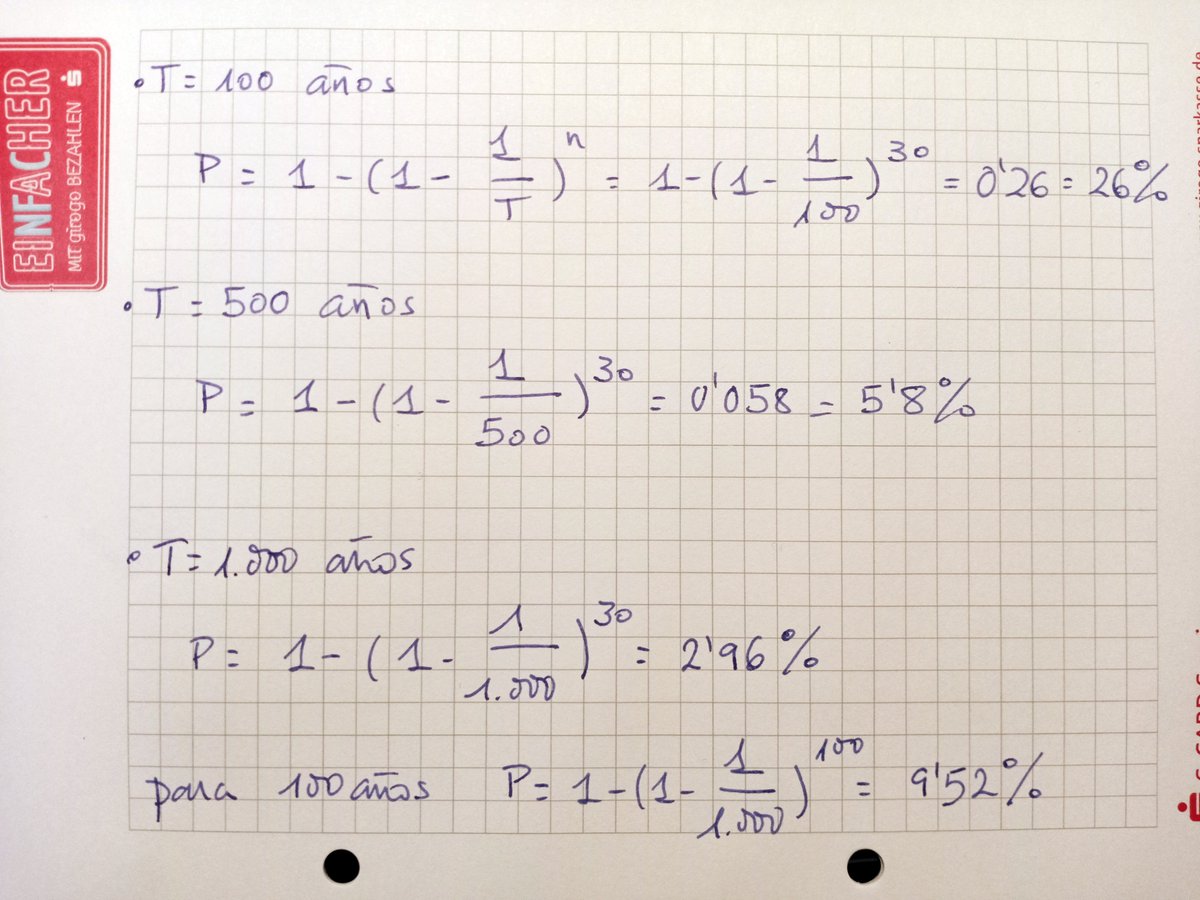 EINFACHER
MIT girogo BEZAHLEN
• T = 100 años
P = 1 - (1 - 1/T)^n = 1 - (1 - 1/100)^30 = 0'26 = 26%
• T = 500 años
P = 1 - (1 - 1/500)^30 = 0'058 = 5'8%
• T = 1.000 años
P = 1 - (1 - 1/1.000)^30 = 2'96%
para 100 años P = 1 - (1 - 1/1.000)^100 = 9'52%